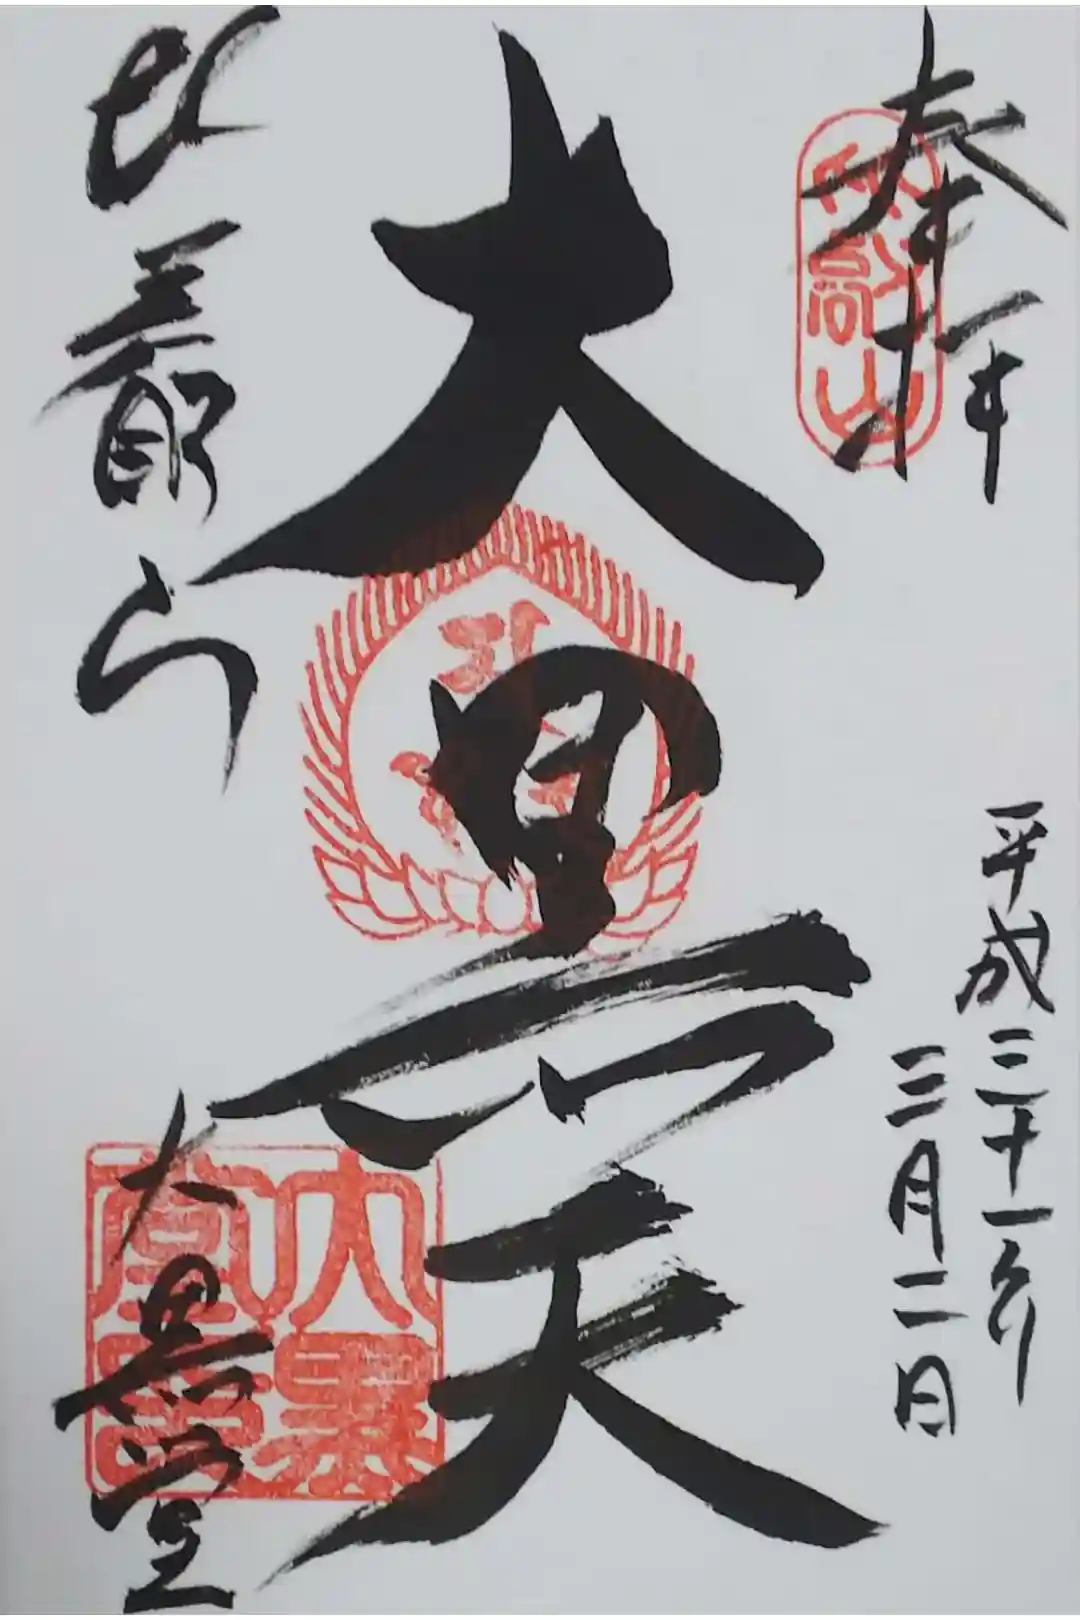 奉拝
比叡山
平成三十一年
三月二日
大黒天
比叡山
大黒堂
大黒堂印